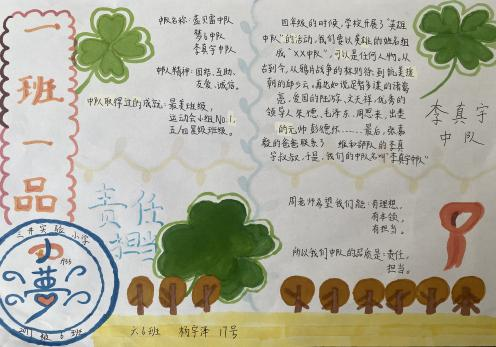 一班一品
中队名称：孟贝雷中队
梦6中队
李真宇中队
中队精神：团结、互助、
友爱、诚信。
中队取得过的成就：最美班级，
运动会小组No.1，
五八星级班级。
四年级的时候，学校开展了"英雄
中队"的活动，我们要以英雄的姓名组
成"XX中队"，可以是任何人物。从
古到今，从鸦片战争的林则徐，到
朝的邱少云。再比如说足智多谋的诸葛
亮，爱国的陆游、文天祥，优秀的
领导人朱德、毛泽东、周恩来，出色
的元帅彭德怀……最后，张嘉
毅的爸爸联系了 维和部队的李真
宇叔叔，于是，我们的中队名叫"李真宇中队"
李真宇
中队
责任
担当
周老师希望我们能：有理想，
有本领，
有担当。
所以我们中队的品质是：责任，
担当。
三井实验小学
小梦
班
六6班 杨宇泽 17号